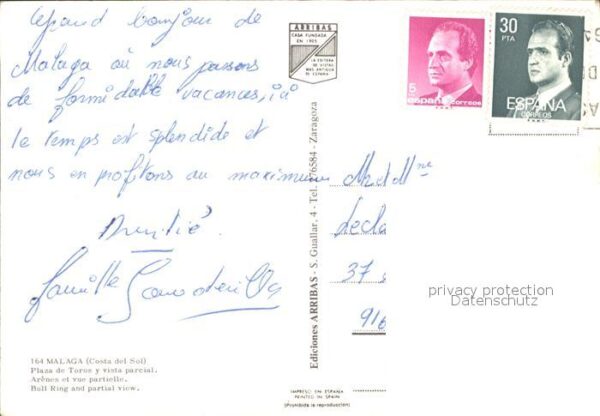 grand bonjour de
Malaga où nous passons
de formidable vacances, ici
le temps est splendide et
nous en profitons au maximum
Amitié
famille
164 MALAGA (Costa del Sol)
Plaza de Toros y vista parcial.
Arènes et vue partielle.
Bull Ring and partial view.
ARRIBAS
CASA FUNDADA
EN 1905
LA EDITORA
DE VISTAS
MAS ANTIGUA
DE ESPAÑA
Ediciones ARRIBAS - S. Guallar, 4 - Tel. 276584 - Zaragoza
IMPRESO EN ESPAÑA
PRINTED IN SPAIN
(Prohibida la reproducción)
5
españa correos
30
PTA
ESPAÑA
CORREOS
Mr et Mme
Decla
37
916
privacy protection
Datenschutz